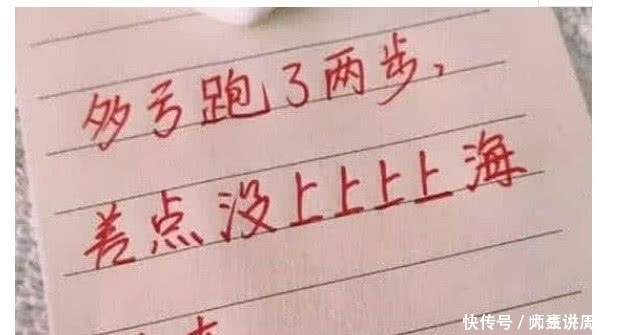 多亏跑了两步，
差点没上上上上海
快传号/两壶说周